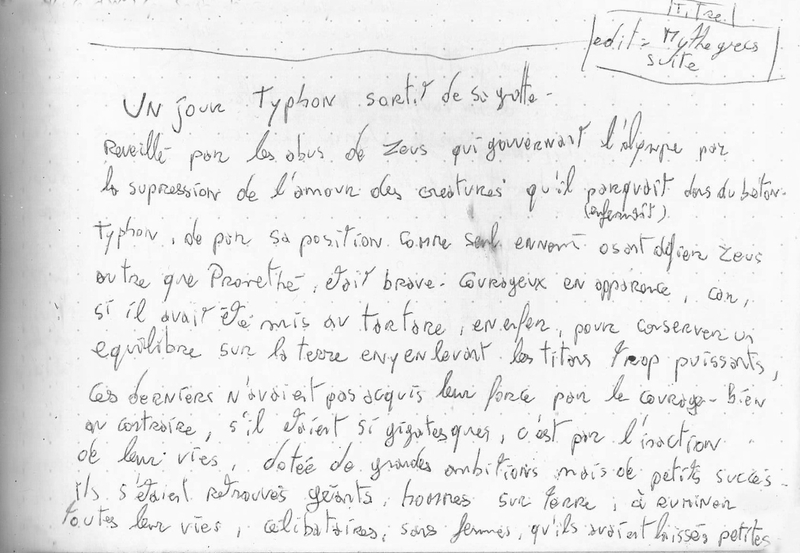 Titre
edit = Mythe grecs
suite
Un jour Typhon sortit de sa grotte.
Reveillé par les abus de Zeus qui gouvernait l'olympe par
la supression de l'amour des creatures qu'il parquait dans du béton.
(enfermait)
Typhon, de par sa position comme seul ennemi osant defier Zeus
autre que Promethé, était brave. Courageux en apparence, car,
si il avait été mis au tartare, en enfer, pour conserver un
equilibre sur la terre en y enlevant les titans trop puissants,
ces derniers n'avaient pas acquis leur force par le courage. Bien
au contraire, s'il étaient si gigatesques, c'est par l'inaction
de leur vies, dotée de grandes ambitions mais de petits succès.
ils s'étaient retrouvés géants, hommes sur terre, à ruminer
toutes leur vies, celibataires, sans femmes, qu'ils avaient laissés petites